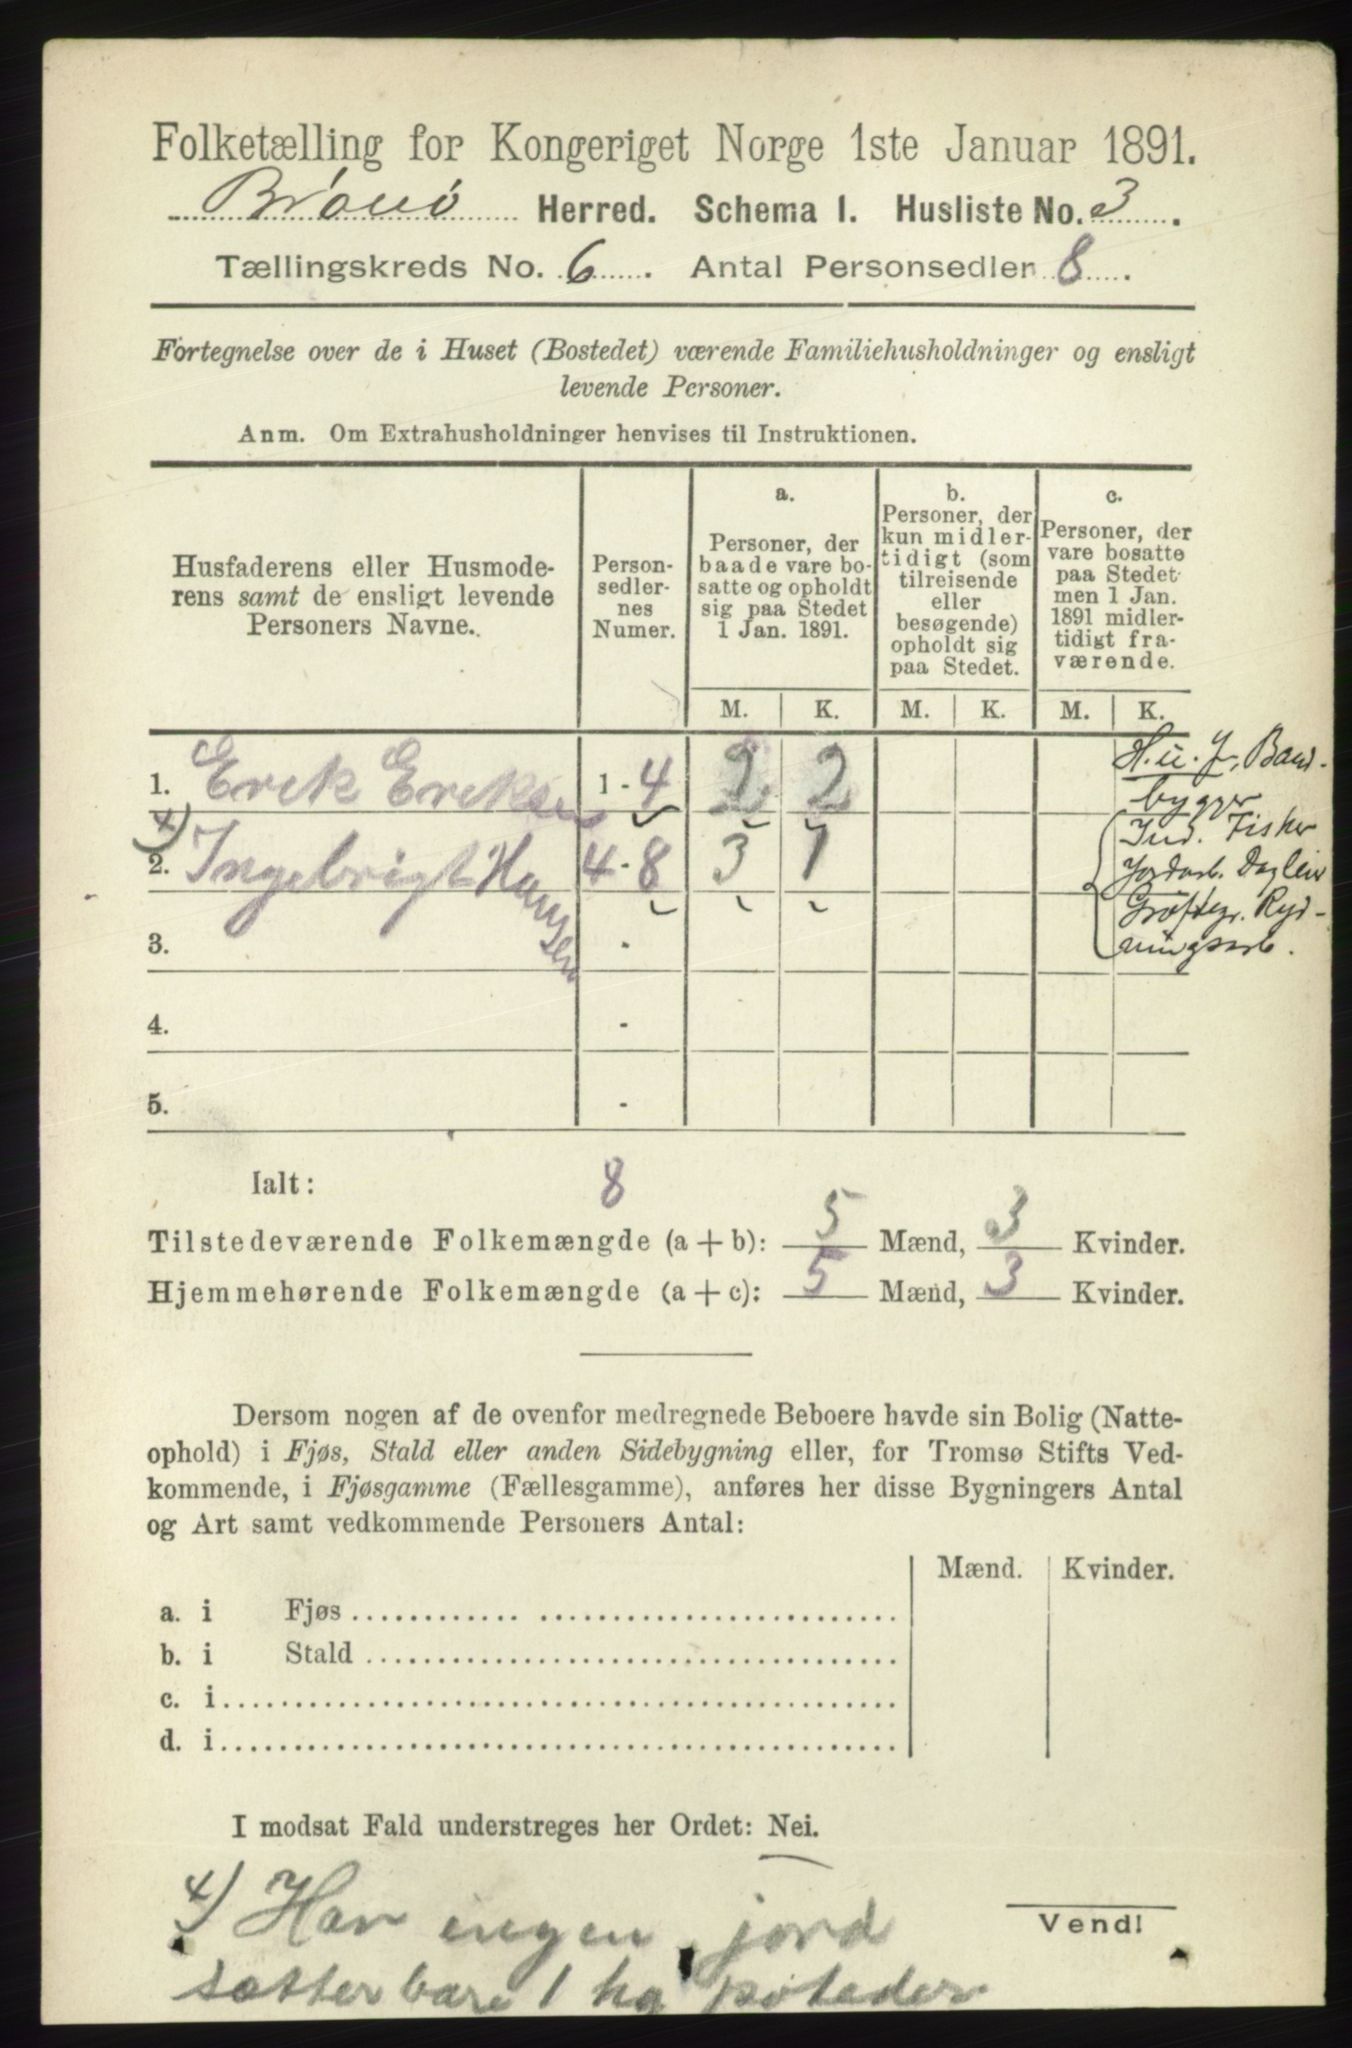 Folketælling for Kongeriget Norge 1ste Januar 1891.
Brønø Herred. Schema I. Husliste No. 3.
Tællingskreds No. 6. Antal Personsedler 8.
Fortegnelse over de i Huset (Bostedet) værende Familiehusholdninger og ensligt
levende Personer.
Anm. Om Extrahusholdninger henvises til Instruktionen.
Husfaderens eller Husmode-
rens samt de ensligt levende
Personers Navne.
Person-
sedler-
nes
Numer.
a.
Personer, der
baade vare bo-
satte og opholdt
sig paa Stedet
1 Jan. 1891.
b.
Personer, der
kun midler-
tidigt (som
tilreisende
eller
besøgende)
opholdt sig
paa Stedet.
c.
Personer, der
vare bosatte
paa Stedet
men 1 Jan.
1891 midler-
tidigt fra-
værende.
M. K. M. K. M. K.
1. Erik Eriksen 1 - 4 2 2
H. u. J, Baad-
bygger
x)
2. Ingebrigt Hansen 4 - 8 3 1
Ind. Fisker
Jordarb. Dagleier
Grøftegr. Ryd-
ningsarb.
3. -
4. -
5. -
Ialt: 8
Tilstedeværende Folkemængde (a + b): 5 Mænd, 3 Kvinder.
Hjemmehørende Folkemængde (a + c): 5 Mænd, 3 Kvinder.
Dersom nogen af de ovenfor medregnede Beboere havde sin Bolig (Natte-
ophold) i Fjøs, Stald eller anden Sidebygning eller, for Tromsø Stifts Ved-
kommende, i Fjøsgamme (Fællesgamme), anføres her disse Bygningers Antal
og Art samt vedkommende Personers Antal:
Mænd. Kvinder.
a. i Fjøs
b. i Stald
c. i
d. i
I modsat Fald understreges her Ordet: Nei.
x) Har ingen jord
sætter bare 1 hg poteder
Vend!